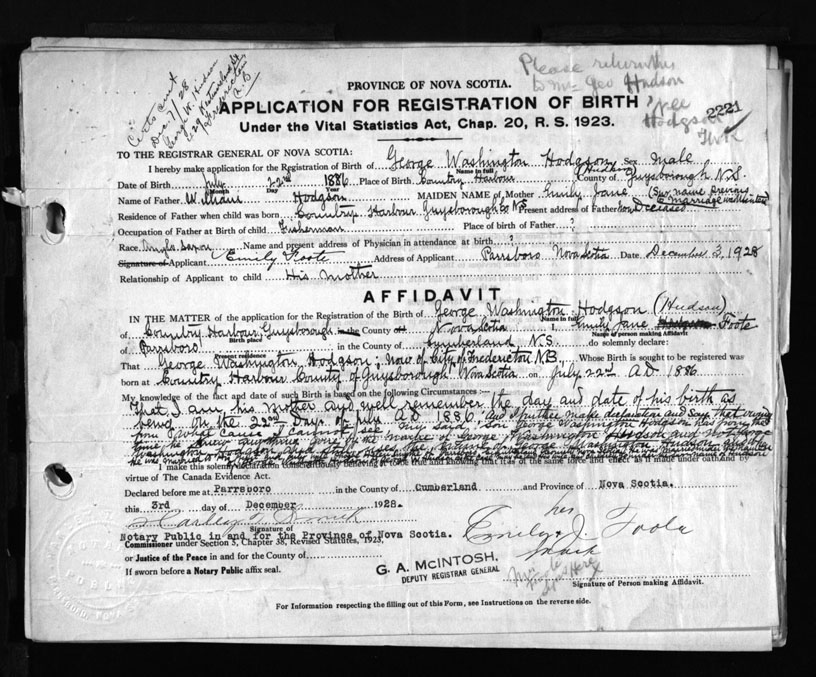 Please return this
to Mr Geo Hudson
nee
Hodgson
2221
Certs sent
Dec 7/28
George W. Hudson
Fredericton
N.B
PROVINCE OF NOVA SCOTIA.
APPLICATION FOR REGISTRATION OF BIRTH
Under the Vital Statistics Act, Chap. 20, R. S. 1923.
TO THE REGISTRAR GENERAL OF NOVA SCOTIA:
I hereby make application for the Registration of Birth of George Washington Hodgson Sex Male
Name in full (Hudson)
Date of Birth July 22nd 1886 Place of Birth Country Harbour County of Guysborough N.S.
Month Day Year
Name of Father William Hodgson MAIDEN NAME of Mother Emily Jane (Sur name previous
to marriage
Residence of Father when child was born Country Harbour Guysborough Co NS Present address of Father now Deceased
Occupation of Father at Birth of Child Fisherman Place of birth of Father ?
Race Anglo Saxon Name and present address of Physician in attendance at birth ?
Signature of Applicant Emily Foote Address of Applicant Parrsboro Nova Scotia Date December 3, 1928
Relationship of Applicant to child His Mother
AFFIDAVIT
IN THE MATTER of the application for the Registration of the Birth of George Washington Hodgson (Hudson)
Name in full
of Country Harbour Guysborough in the County of Nova Scotia I, Emily Jane Hodgson Foote
Birth place Name of person making Affidavit
of Parrsboro Cumberland N.S. do solemnly declare:
Present residence
That George Washington Hodgson; now of City of Fredericton N.B., Whose Birth is sought to be registered was
born at Country Harbour County of Guysborough Nova Scotia on July 22nd AD 1886
My knowledge of the fact and date of such Birth is based on the following Circumstances:—
That I am his Mother and well remember the day and date of his birth as
being on the 22nd Day of July AD 1886 and I further make declaration and say that
my said son George Washington Hodgson has
George Washington Hodgson and not George
Washington
I make this solemn declaration conscientiously believing it to be true and knowing that it is of the same force and effect as if made under oath and by
virtue of The Canada Evidence Act.
Declared before me at Parrsboro in the County of Cumberland and Province of Nova Scotia.
this 3rd day of December 1928.
Signature of
Notary Public in and for the Province of Nova Scotia.
Commissioner under Section 5, Chapter 38, Revised Statutes, 1923,
or Justice of the Peace in and for the County of
If sworn before a Notary Public affix seal.
her
Emily x J. Foote
mark
G. A. McINTOSH,
DEPUTY REGISTRAR GENERAL
Signature of Person making Affidavit.
For Information respecting the filling out of this Form, see Instructions on the reverse side.